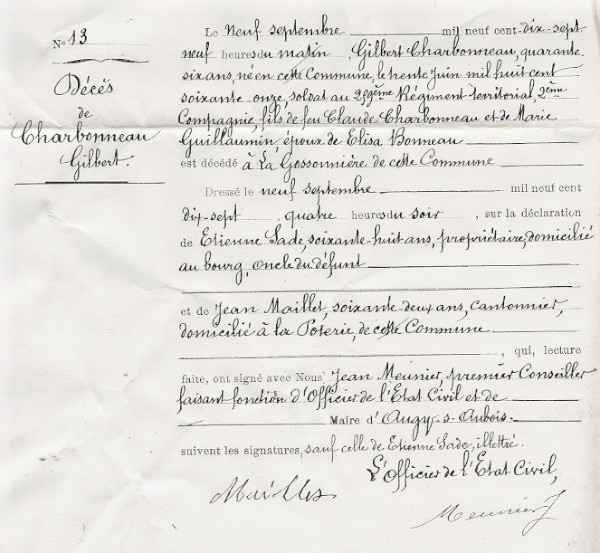 No 13
Décès
de
Charbonneau
Gilbert.
Le Neuf septembre mil neuf cent dix-sept
neuf heures du matin, Gilbert Charbonneau, quarante
six ans, né en cette Commune, le trente Juin mil huit cent
soixante onze, soldat au 299ème Régiment territorial, 2ème
Compagnie, fils de feu Claude Charbonneau et de Marie
Guillaumin, époux de Elisa Bonneau
est décédé à La Gossonnière de cette Commune
Dressé le neuf septembre mil neuf cent
dix-sept, quatre heures du soir, sur la déclaration
de Etienne Sade, soixante-huit ans, propriétaire, domicilié
au bourg, oncle du défunt
et de Jean Maillet, soixante-deux ans, cantonnier,
domicilié à la Poterie, de cette Commune
, qui, lecture
faite, ont signé avec Nous Jean Meunier, premier Conseiller
faisant fonction d'Officier de l'Etat Civil et de
Maire d'Augy-s-Aubois.
suivent les signatures, sauf celle de Etienne Sade, illettré.
L'Officier de l'Etat Civil,
Meunier J